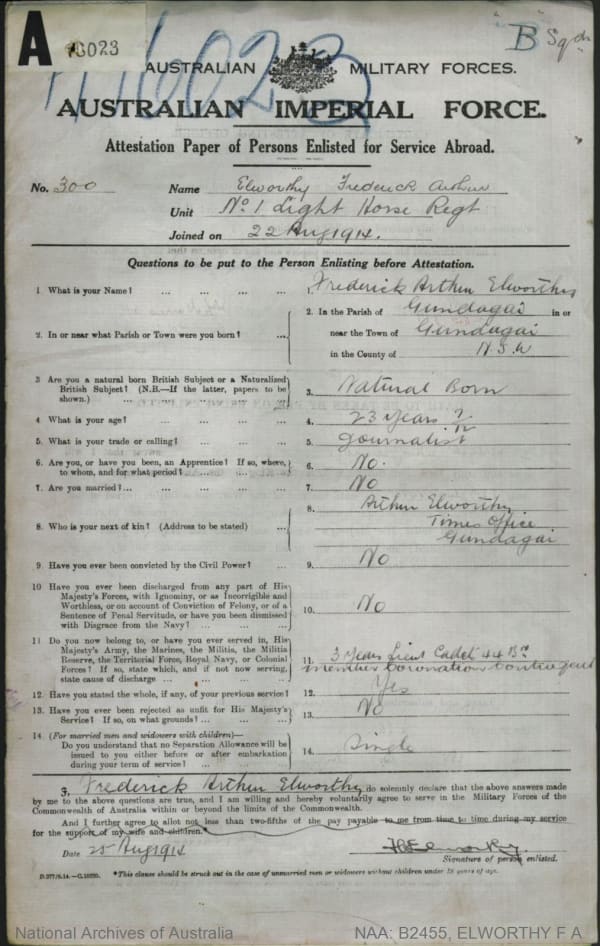 A
B Sqdn
AUSTRALIAN MILITARY FORCES.
AUSTRALIAN IMPERIAL FORCE.
Attestation Paper of Persons Enlisted for Service Abroad.
No. 300 Name Elworthy Frederick Arthur
Unit No 1 Light Horse Regt
Joined on 22 Aug 1914.
Questions to be put to the Person Enlisting before Attestation.
1 What is your Name? ... ... ... ... Frederick Arthur Elworthy
2. In or near what Parish or Town were you born? ... 2. In the Parish of Gundagai in or
near the Town of Gundagai
in the County of N.S.W
3 Are you a natural born British Subject or a Naturalized
British Subject? (N.B.—If the latter, papers to be
shown.) 3. Natural Born
4. What is your age? ... ... ... ... 4. 23 years
5. What is your trade or calling? ... ... ... 5. Journalist
6. Are you, or have you been, an Apprentice? If so, where,
to whom, and for what period? ... ... ... 6. No.
7. Are you married? ... ... ... ... ... 7. No
8. Who is your next of kin? (Address to be stated) ... 8. Arthur Elworthy
Times Office
Gundagai
9 Have you ever been convicted by the Civil Power? ... 9. No
10 Have you ever been discharged from any part of His
Majesty's Forces, with Ignominy, or as Incorrigible and
Worthless, or on account of Conviction of Felony, or of a
Sentence of Penal Servitude, or have you been dismissed
with Disgrace from the Navy? ... ... ... 10. No
11 Do you now belong to, or have you ever served in, His
Majesty's Army, the Marines, the Militia, the Militia
Reserve, the Territorial Force, Royal Navy, or Colonial
Forces? If so, state which, and if not now serving,
state cause of discharge ... 11. 3 Years Lieut Cadet 44 Bn
member Coronation Contingent
12. Have you stated the whole, if any, of your previous service? 12. Yes
13. Have you ever been rejected as unfit for His Majesty's
Service? If so, on what grounds? ... ... ... 13. No
14. (For married men and widowers with children)—
Do you understand that no Separation Allowance will be
issued to you either before or after embarkation
during your term of service? ... ... ... 14. Single
I, Frederick Arthur Elworthy do solemnly declare that the above answers made
by me to the above questions are true, and I am willing and hereby voluntarily agree to serve in the Military Forces of the
Commonwealth of Australia within or beyond the limits of the Commonwealth.
And I further agree to allot not less than two-fifths of the pay payable to me from time to time during my service
for the support of my wife and children.*
Date 25 Aug 1914 FA Elworthy
Signature of person enlisted.
*This clause should be struck out in the case of unmarried men or widowers without children under 18 years of age.
National Archives of Australia NAA: B2455, ELWORTHY F A